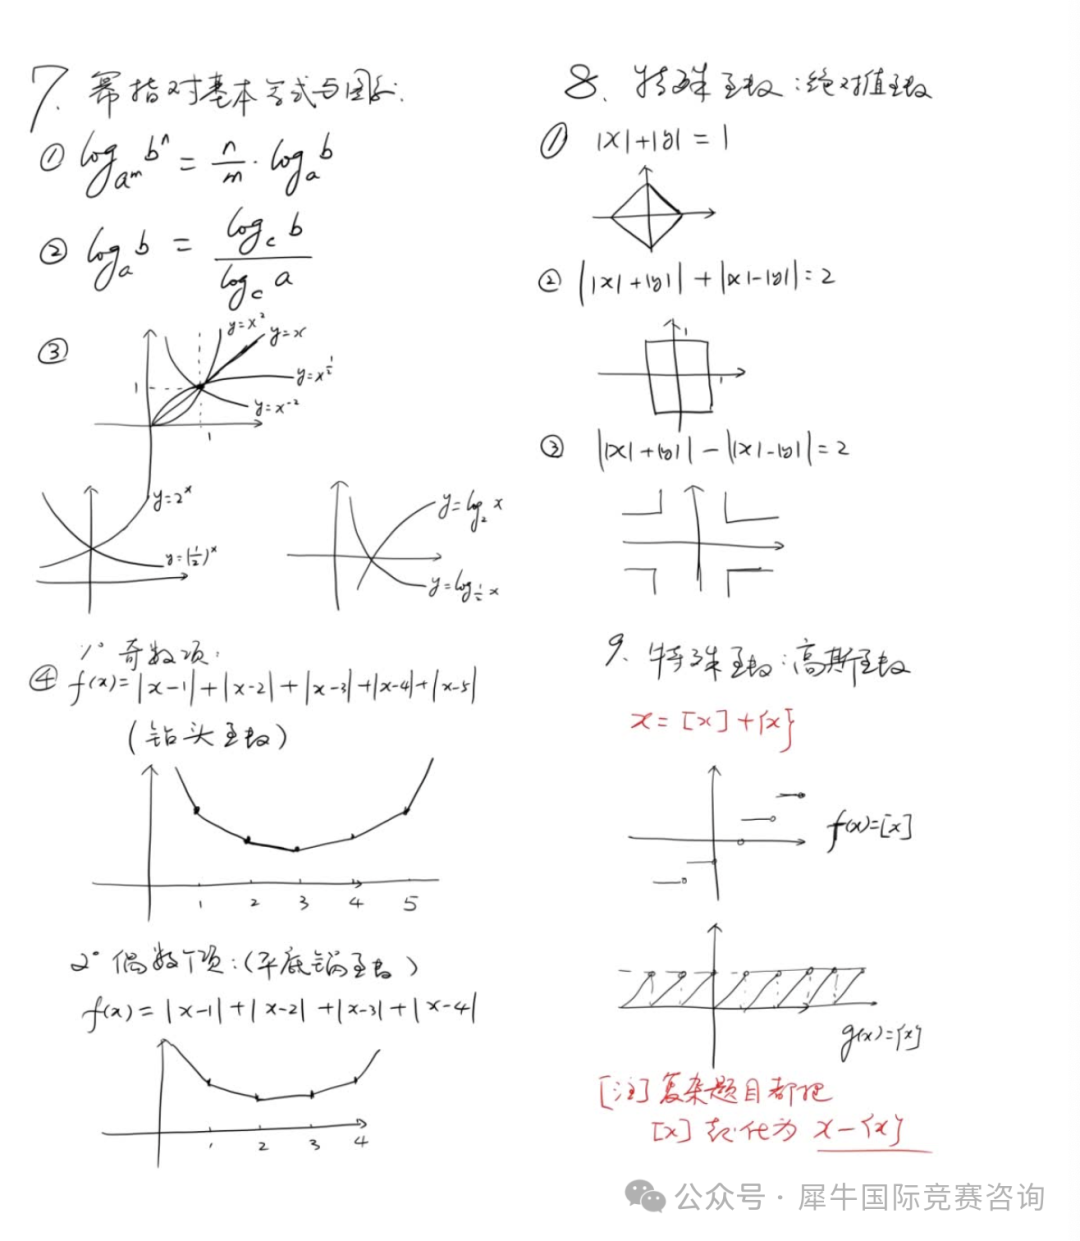 7. 幂指对基本公式与图象:
① log_{a^m} b^n = n/m · log_a b
② log_a b = log_c b / log_c a
③
y=x²
y=x
y=x^{1/2}
y=x^{-2}
1
1
y=2^x
y=(1/2)^x
y=log_2 x
y=log_{1/2} x
1° 奇数项:
④ f(x)=|x-1|+|x-2|+|x-3|+|x-4|+|x-5|
(钻头函数)
1 2 3 4 5
2° 偶数个项:(平底锅函数)
f(x)=|x-1|+|x-2|+|x-3|+|x-4|
1 2 3 4
8. 特殊函数:绝对值函数
① |x|+|y|=1
② ||x|+|y||+||x|-|y||=2
1
1
③ ||x|+|y||-||x|-|y||=2
9. 特殊函数:高斯函数
x=[x]+{x}
f(x)=[x]
g(x)={x}
[注]复杂题目都把
[x]转化为 x-{x}
公众号·犀牛国际竞赛咨询